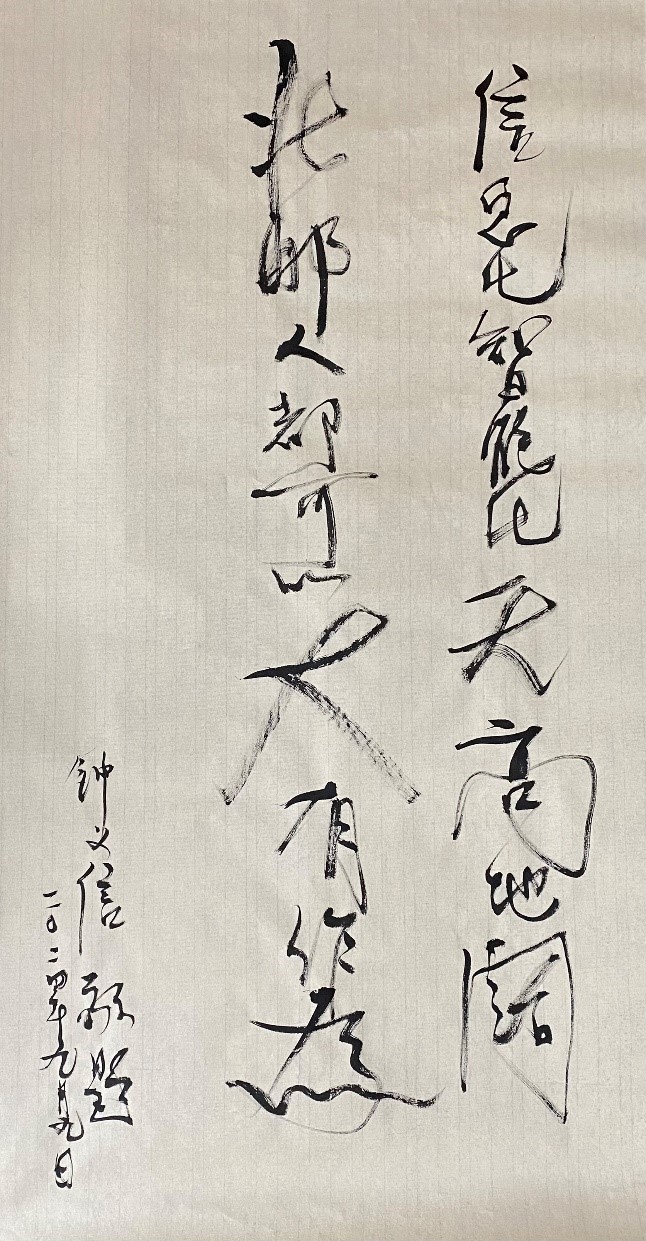 信息化智能化天高地阔
北邮人都可以大有作為
钟义信 敬题
二〇二四年九月九日